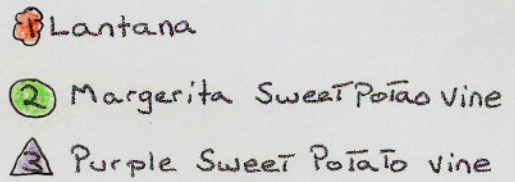 1 Lantana
2 Margerita Sweet Potao Vine
3 Purple Sweet Potato vine